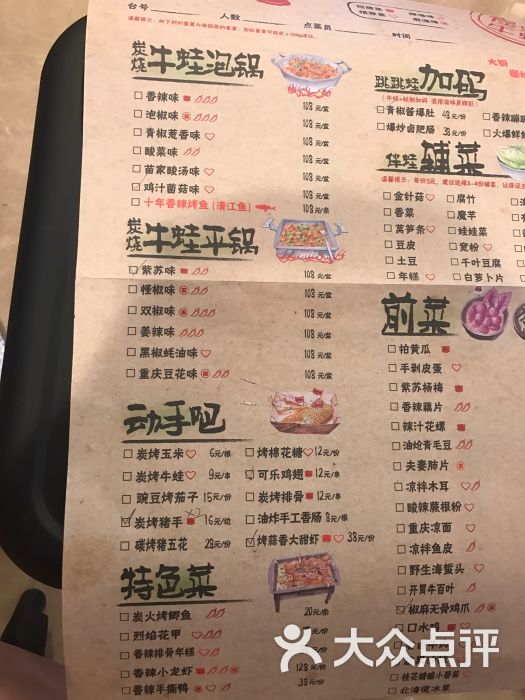 台号 人数 点菜员 时间
炭烧 牛蛙泡锅
香辣味 108元/盆
泡椒味 108元/盆
青椒葱香味 108元/盆
酸菜味 108元/盆
苗家酸汤味 108元/盆
鸡汁菌菇味 108元/盆
十年香辣烤鱼(清江鱼) 108元/条
炭烧 牛蛙平锅
紫苏味 108元/盆
怪椒味 108元/盆
双椒味 108元/盆
姜辣味 108元/盆
黑椒蚝油味 108元/盆
重庆豆花味 108元/盆
动手吧
炭烤玉米 6元/根 烤棉花糖 12元/份
炭烤牛蛙 9元/串 可乐鸡翅 12元/串
豌豆烤茄子 15元/份 炭烤排骨 12元/串
炭烤猪手 16元/处 油炸手工香肠 8元/根
碳烤猪五花 28元/份 烤蒜香大甜虾 38元/份
特色菜
炭火烤鲫鱼 20元/条
烈焰花甲
香辣排骨年糕
香辣小龙虾 128元/份
香辣手撕鸭 38元/份
跳跳蛙 加码
青椒酱爆肚 48元/份
爆炒卤肥肠 38元/份
伴蛙 辅菜
金针菇 腐竹
香菜 魔芋
莴笋条 娃娃菜
豆皮 宽粉
土豆 千叶豆腐
年糕 白萝卜片
前菜
拍黄瓜
手剥皮蛋
紫苏杨梅
香辣藕片
辣汁花螺
油炝青毛豆
夫妻肺片
凉拌木耳
酸辣蕨根粉
重庆凉面
凉拌鱼皮
野生海蜇头
开胃牛百叶
椒麻无骨鸡爪
口水鸭
大众点评